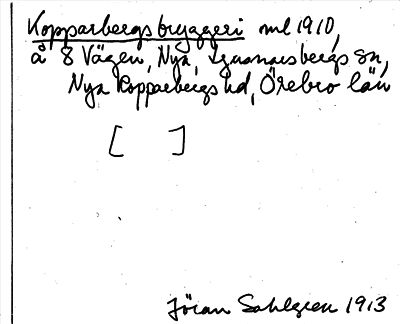 Kopparbergs bryggeri ml 1910,
å 8 Vägen, Nya, Ljusnarsbergs sn,
Nya Kopparbergs hd, Örebro län
[ ]
Jöran Sahlgren 1913